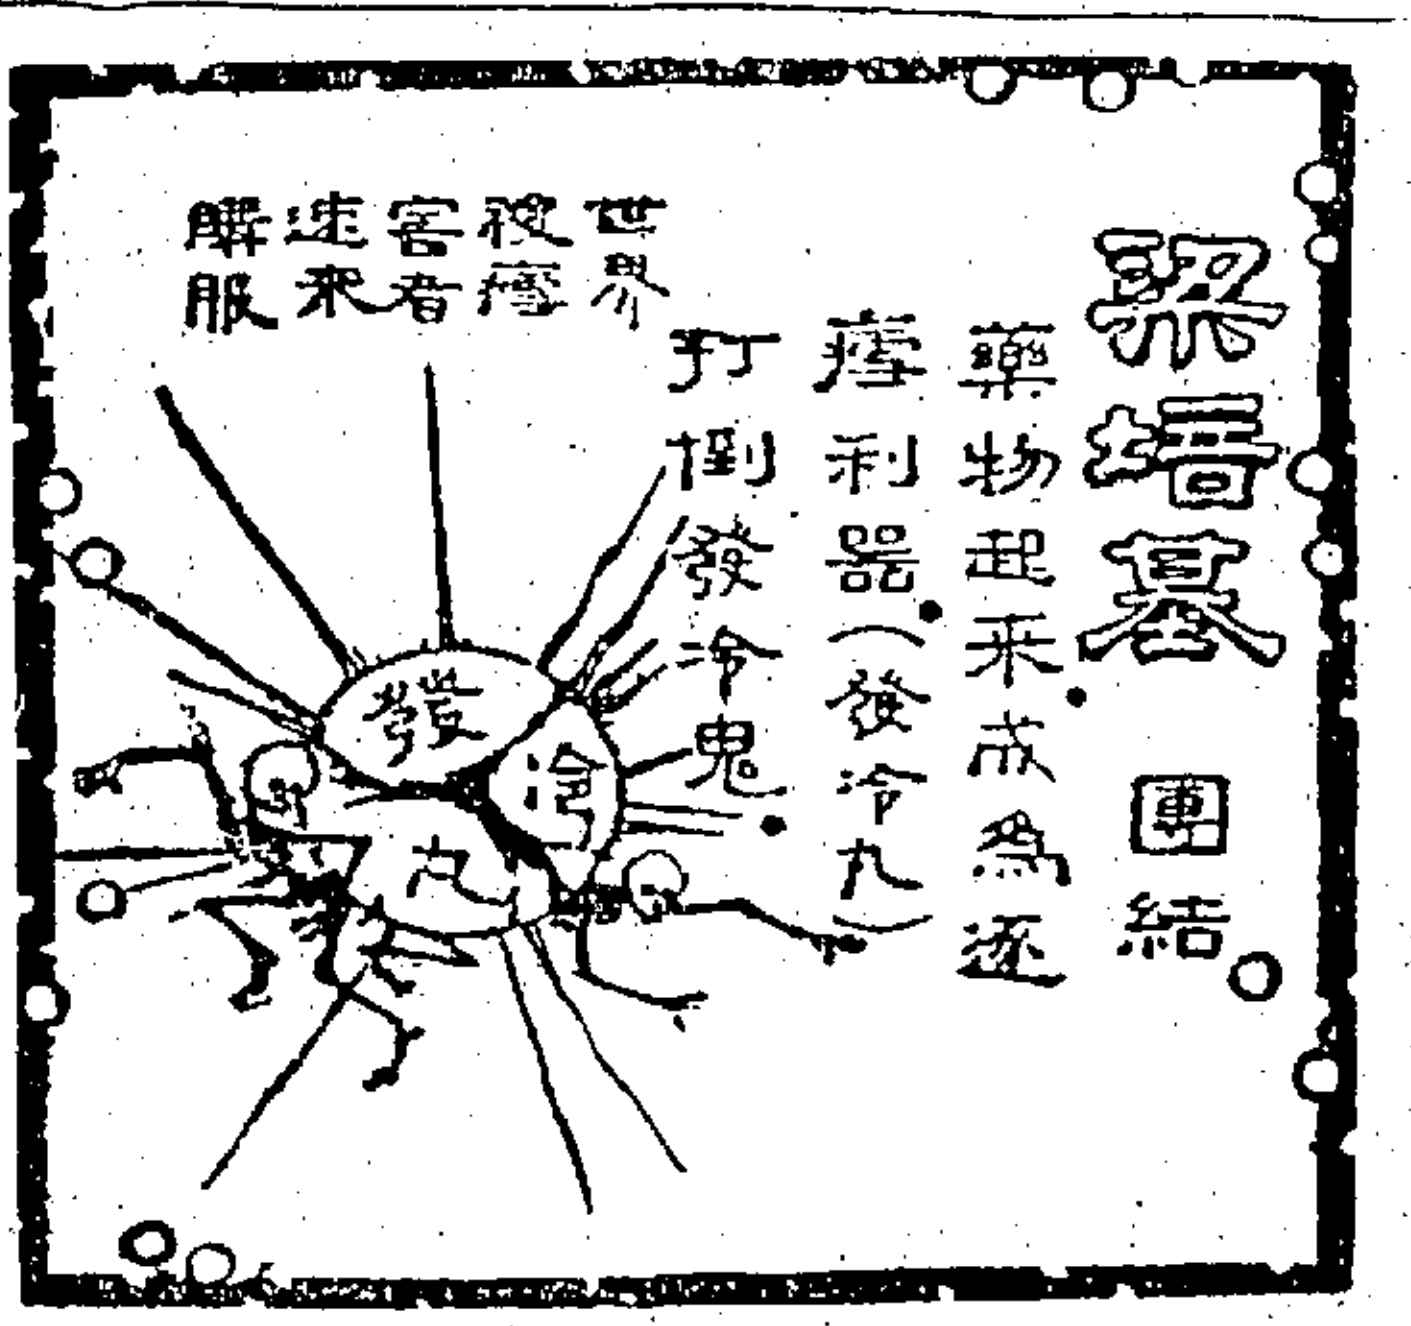 梁培基 團結
藥物起來成為逐
瘧利器(發冷丸)
打倒發冷鬼
世界
被瘧
害者
速來
購服
發
冷
丸